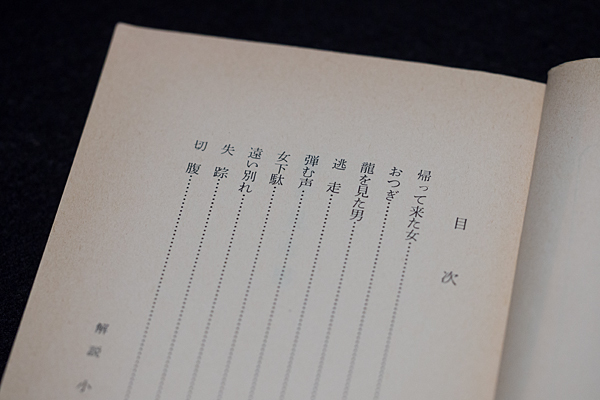 目次
帰って来た女
おつぎ
龍を見た男
逃走
弾む声
女下駄
遠い別れ
失踪
切腹
解説 小